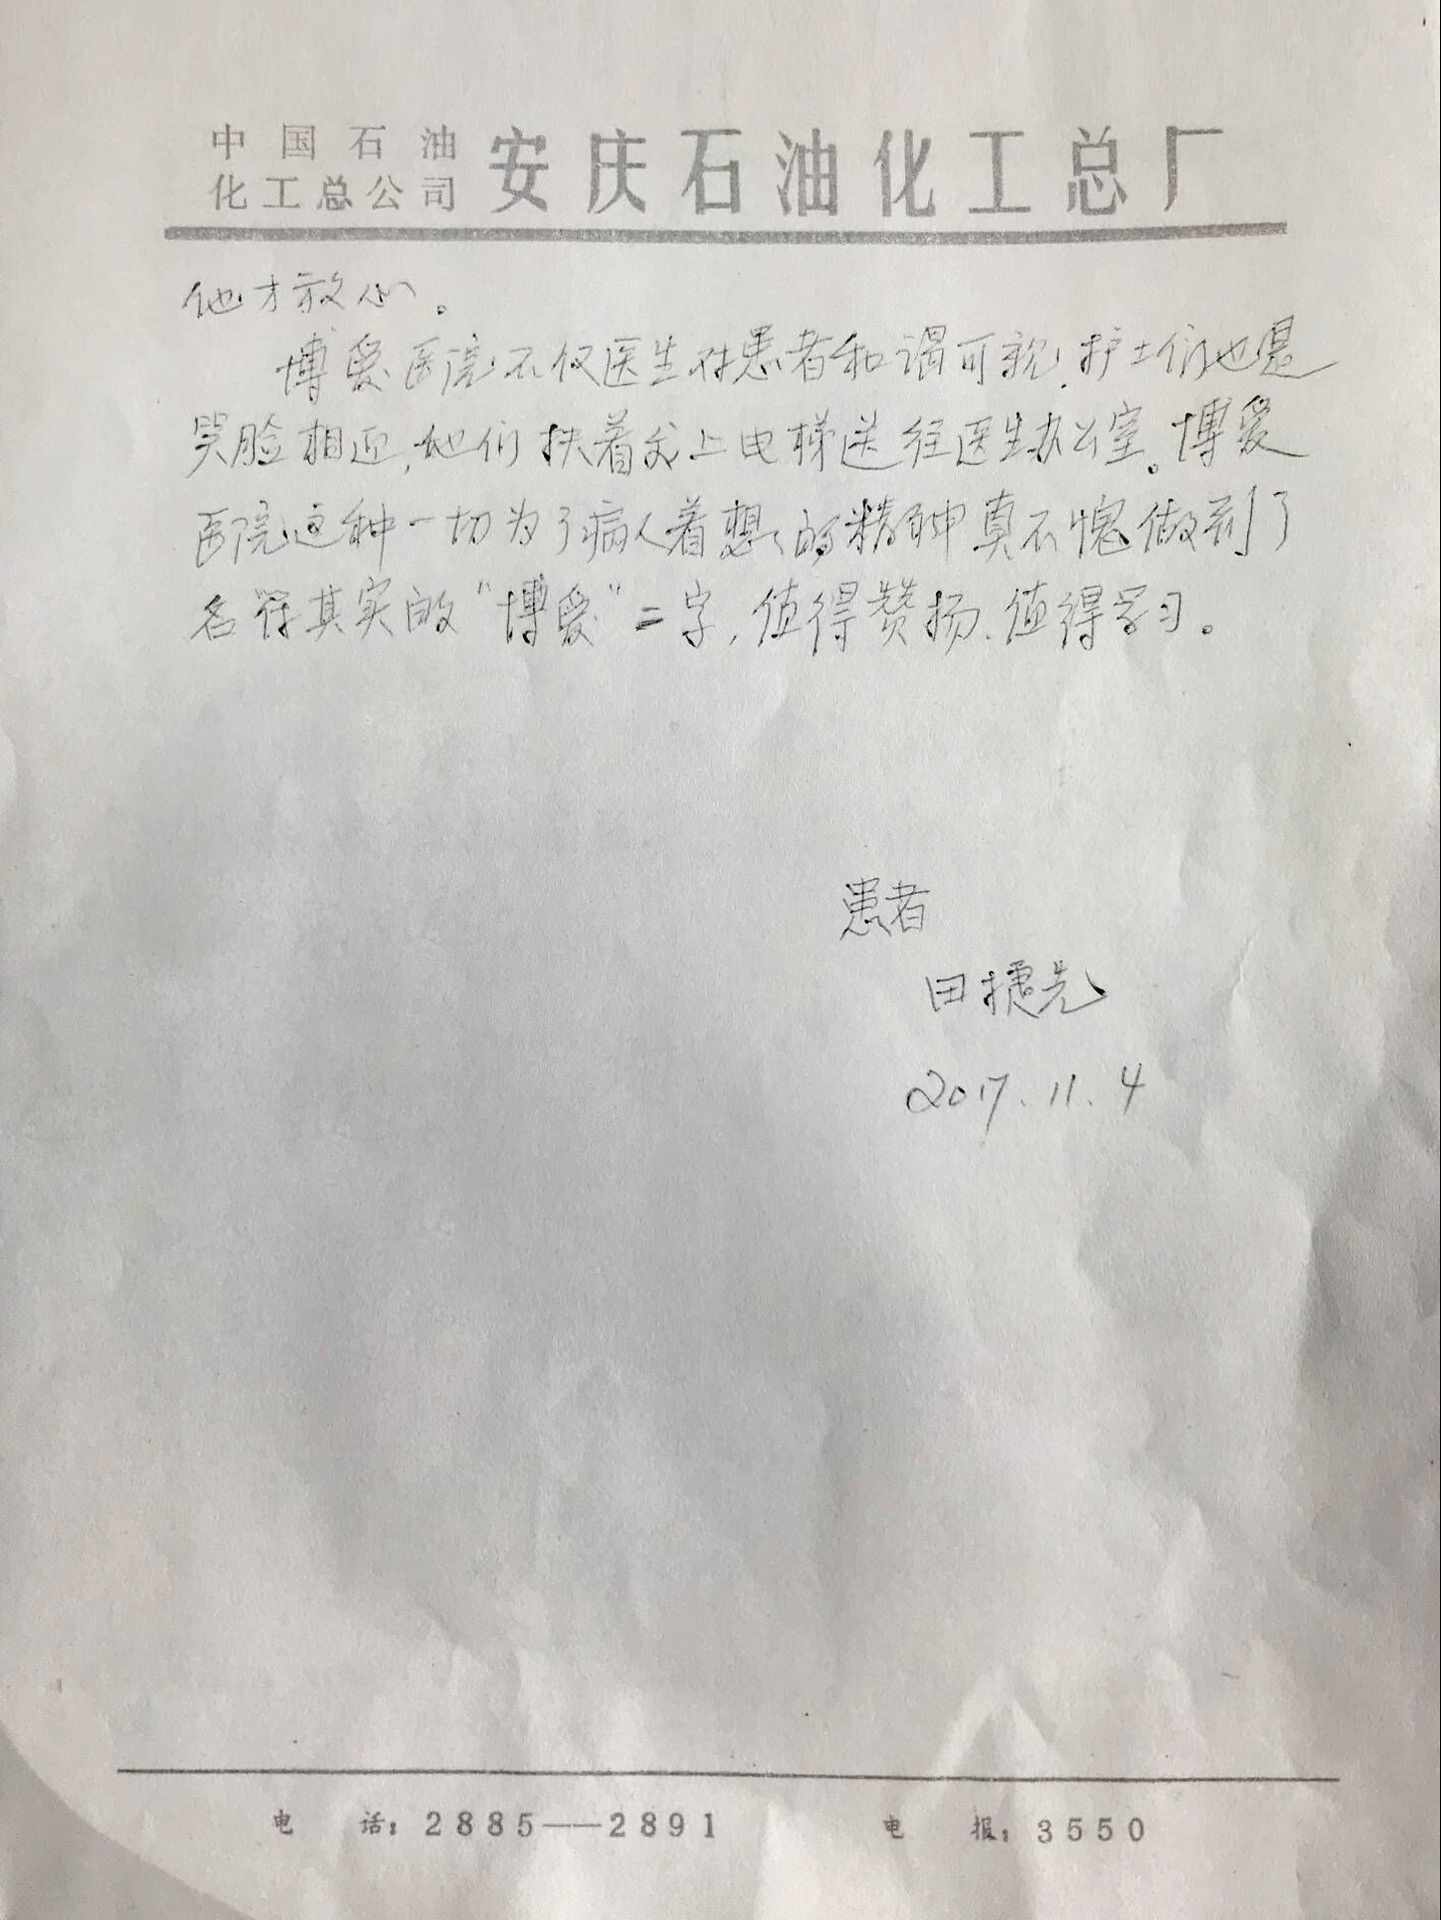 中国石油
化工总公司 安庆石油化工总厂
他才放心。
博爱医院不仅医生对患者和谒可亲,护士们也是
笑脸相迎,她们扶着我上电梯送往医生办公室。博爱
医院这种一切为了病人着想的精神真不愧做到了
名符其实的“博爱”二字,值得赞扬、值得学习。
患者
田捷先
2017.11.4
电 话:2885——2891 电 报:3550